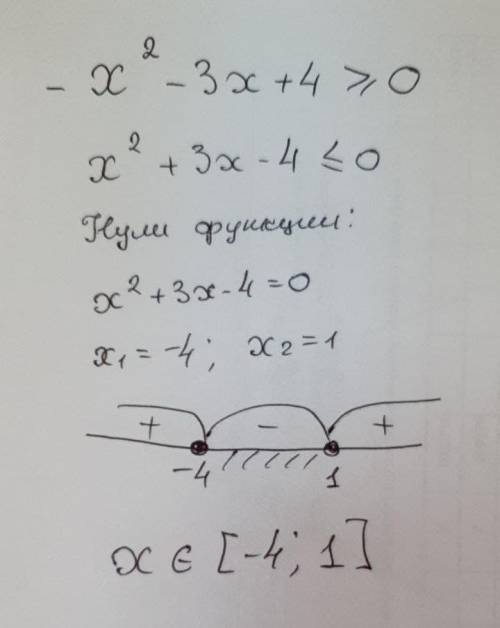 - x² - 3x + 4 ⩾ 0
x² + 3x - 4 ≤ 0
Нули функции:
x² + 3x - 4 = 0
x₁ = -4; x₂ = 1
+ - +
-4 1
x ∈ [-4; 1]